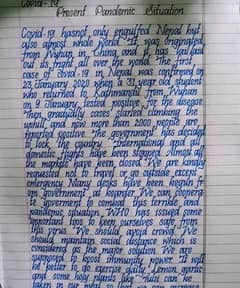 Covid-19
Present Pandemic Situation
Covid-19 hasnot only engulfed Nepal but
also almost whole world. It was originated
from Wuhan, in China, and it has
out its fright all over the world. The first
case of Covid-19 in Nepal was confirmed on
23 January 2020 when a 31 year old student
who returned to Kathmandu from Wuhan
on 9 January, tested positive for the disease
Then gradually cases started climbing the
uphill and now more than 2000 people are
reported positive. The government has decided
to lock the country. International and all
domestic flights have been stopped. Almost all
the markets have been closed. We are kindly
requested not to travel or go outside except
emergency. Many desks have been
government at We can
to goverment to combat this terrible and
pandemic situation. WHO has issued some
important tips to keep ourselves safe from
this virus. We should avoid crowd. We
should maintain social distance which is
considered as the major solution. We are
supposed to boost immunity power. It will
be better to do exercise daily. Lemon, garlic
and some holy plants like can be
taken in our meal so that it can increase